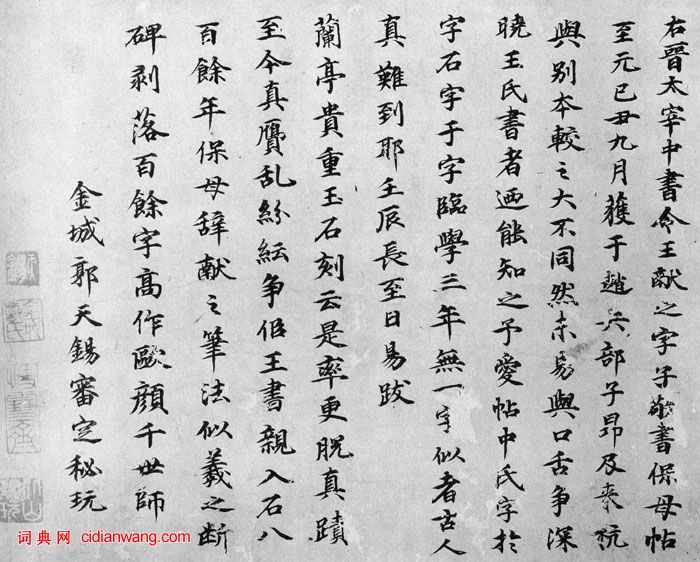 右晉太宰中書令王献之字子敬書保母帖
至元己丑九月獲于趙兵部子昂及來杭
與别本較之大不同然未易與口舌争深
曉王氏書者迺能知之予愛帖中氏字於
字石字于字臨學三年無一字似者古人
真難到耶壬辰長至日易跋
蘭亭貴重玉石刻云是率更脱真蹟
至今真贋乱紛紜争佀王書親入石八
百餘年保母辞献之筆法似羲之断
碑剥落百餘字高作歐顔千世師
金城郭天錫審定秘玩
词典网 cidianwang.com